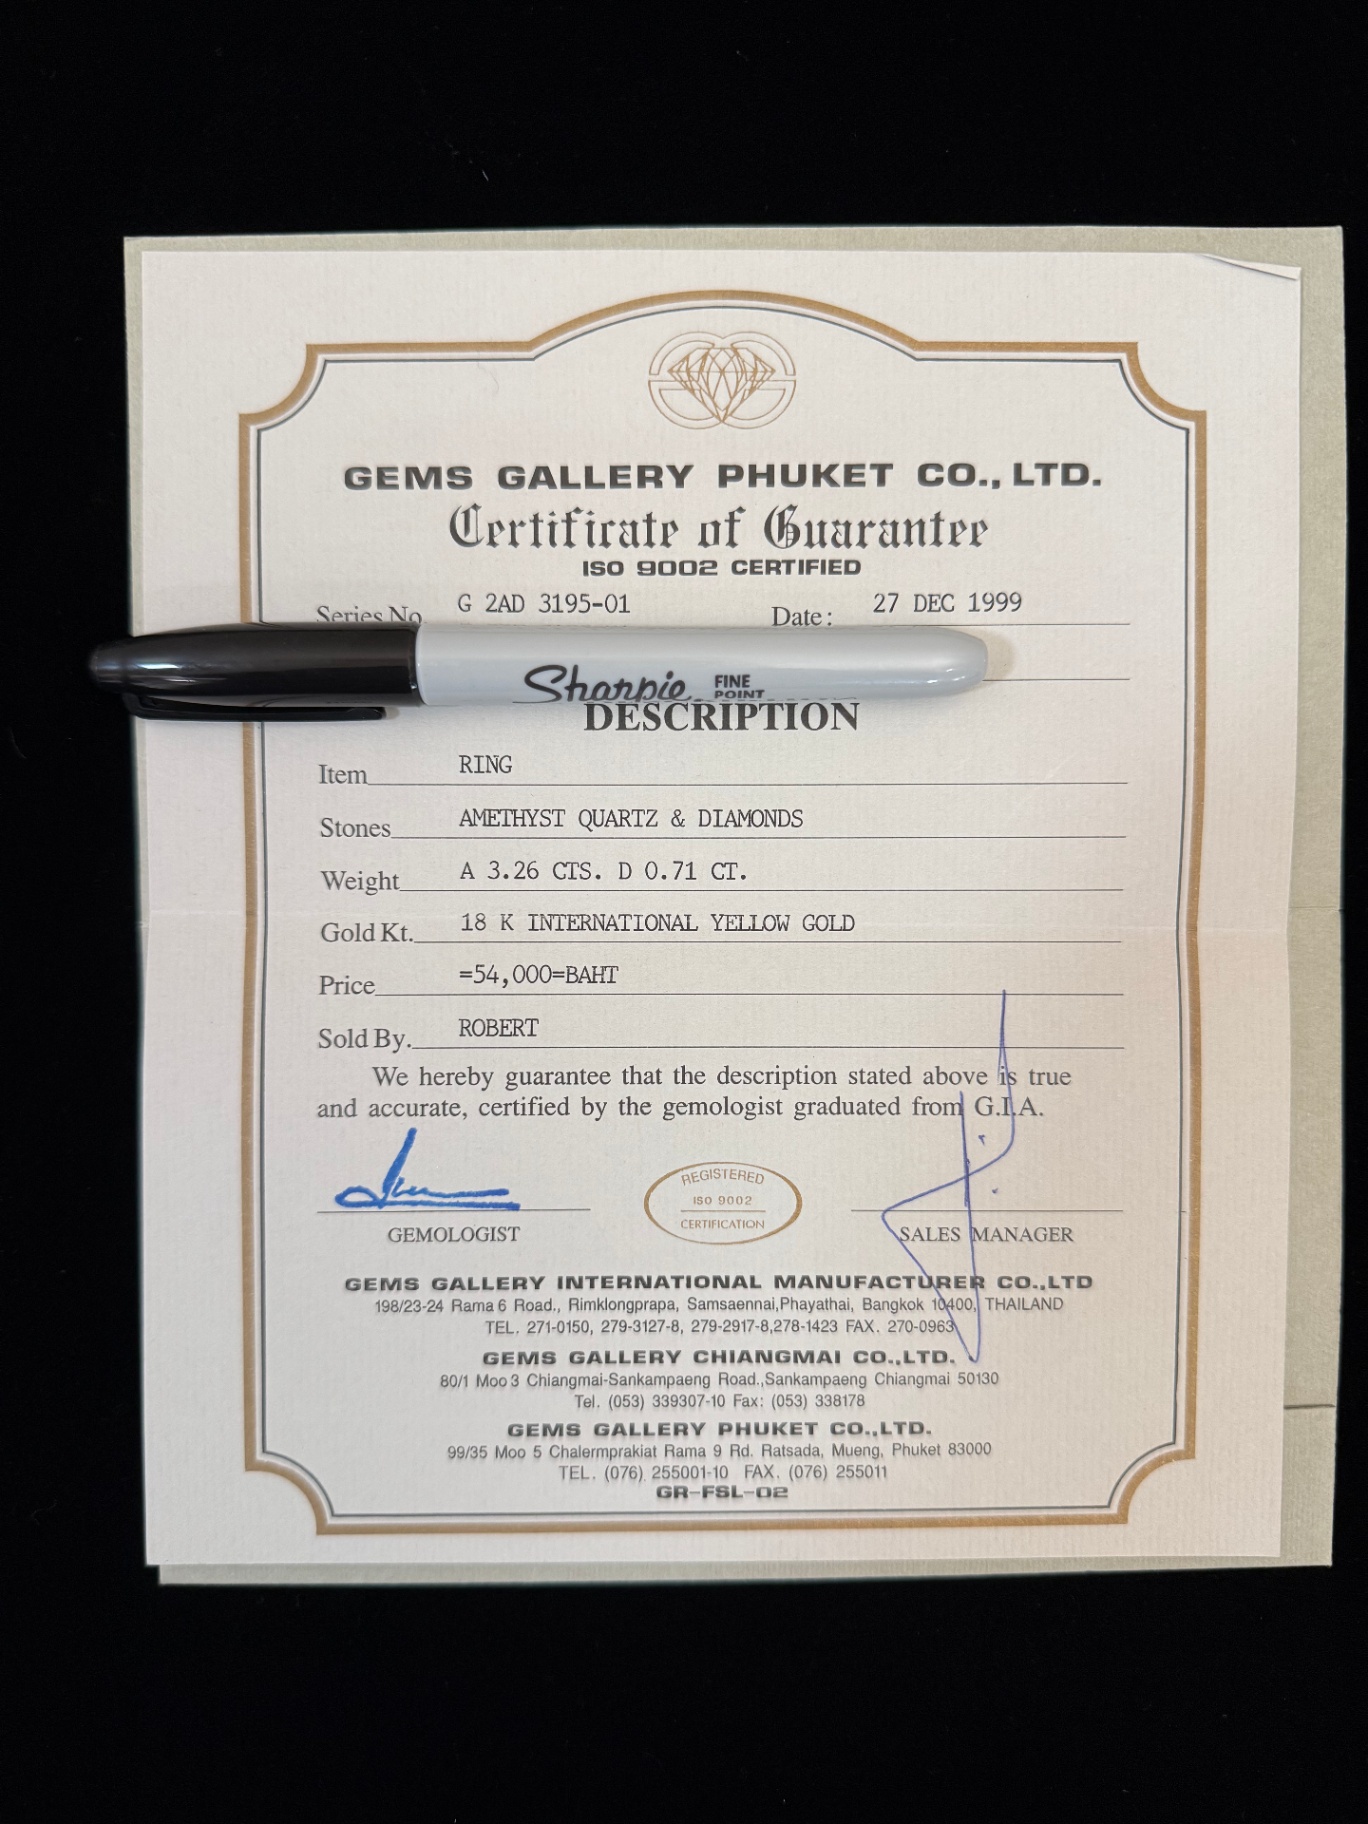 GEMS GALLERY PHUKET CO., LTD.
Certificate of Guarantee
ISO 9002 CERTIFIED
Series No G 2AD 3195-01 Date: 27 DEC 1999
Sharpie FINE
POINT
DESCRIPTION
Item RING
Stones AMETHYST QUARTZ & DIAMONDS
Weight A 3.26 CTS. D 0.71 CT.
Gold Kt. 18 K INTERNATIONAL YELLOW GOLD
Price =54,000=BAHT
Sold By. ROBERT
We hereby guarantee that the description stated above is true
and accurate, certified by the gemologist graduated from G.I.A.
REGISTERED
ISO 9002
CERTIFICATION
GEMOLOGIST SALES MANAGER
GEMS GALLERY INTERNATIONAL MANUFACTURER CO.,LTD
198/23-24 Rama 6 Road., Rimklongprapa, Samsaennai,Phayathai, Bangkok 10400, THAILAND
TEL. 271-0150, 279-3127-8, 279-2917-8,278-1423 FAX. 270-0963
GEMS GALLERY CHIANGMAI CO.,LTD.
80/1 Moo 3 Chiangmai-Sankampaeng Road.,Sankampaeng Chiangmai 50130
Tel. (053) 339307-10 Fax: (053) 338178
GEMS GALLERY PHUKET CO.,LTD.
99/35 Moo 5 Chalermprakiat Rama 9 Rd. Ratsada, Mueng, Phuket 83000
TEL. (076) 255001-10 FAX. (076) 255011
GR-FSL-02